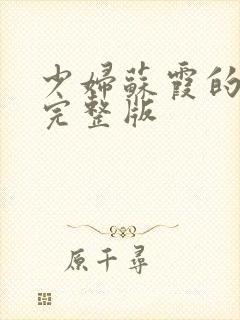 少婦蘇霞的
完整版
原千尋